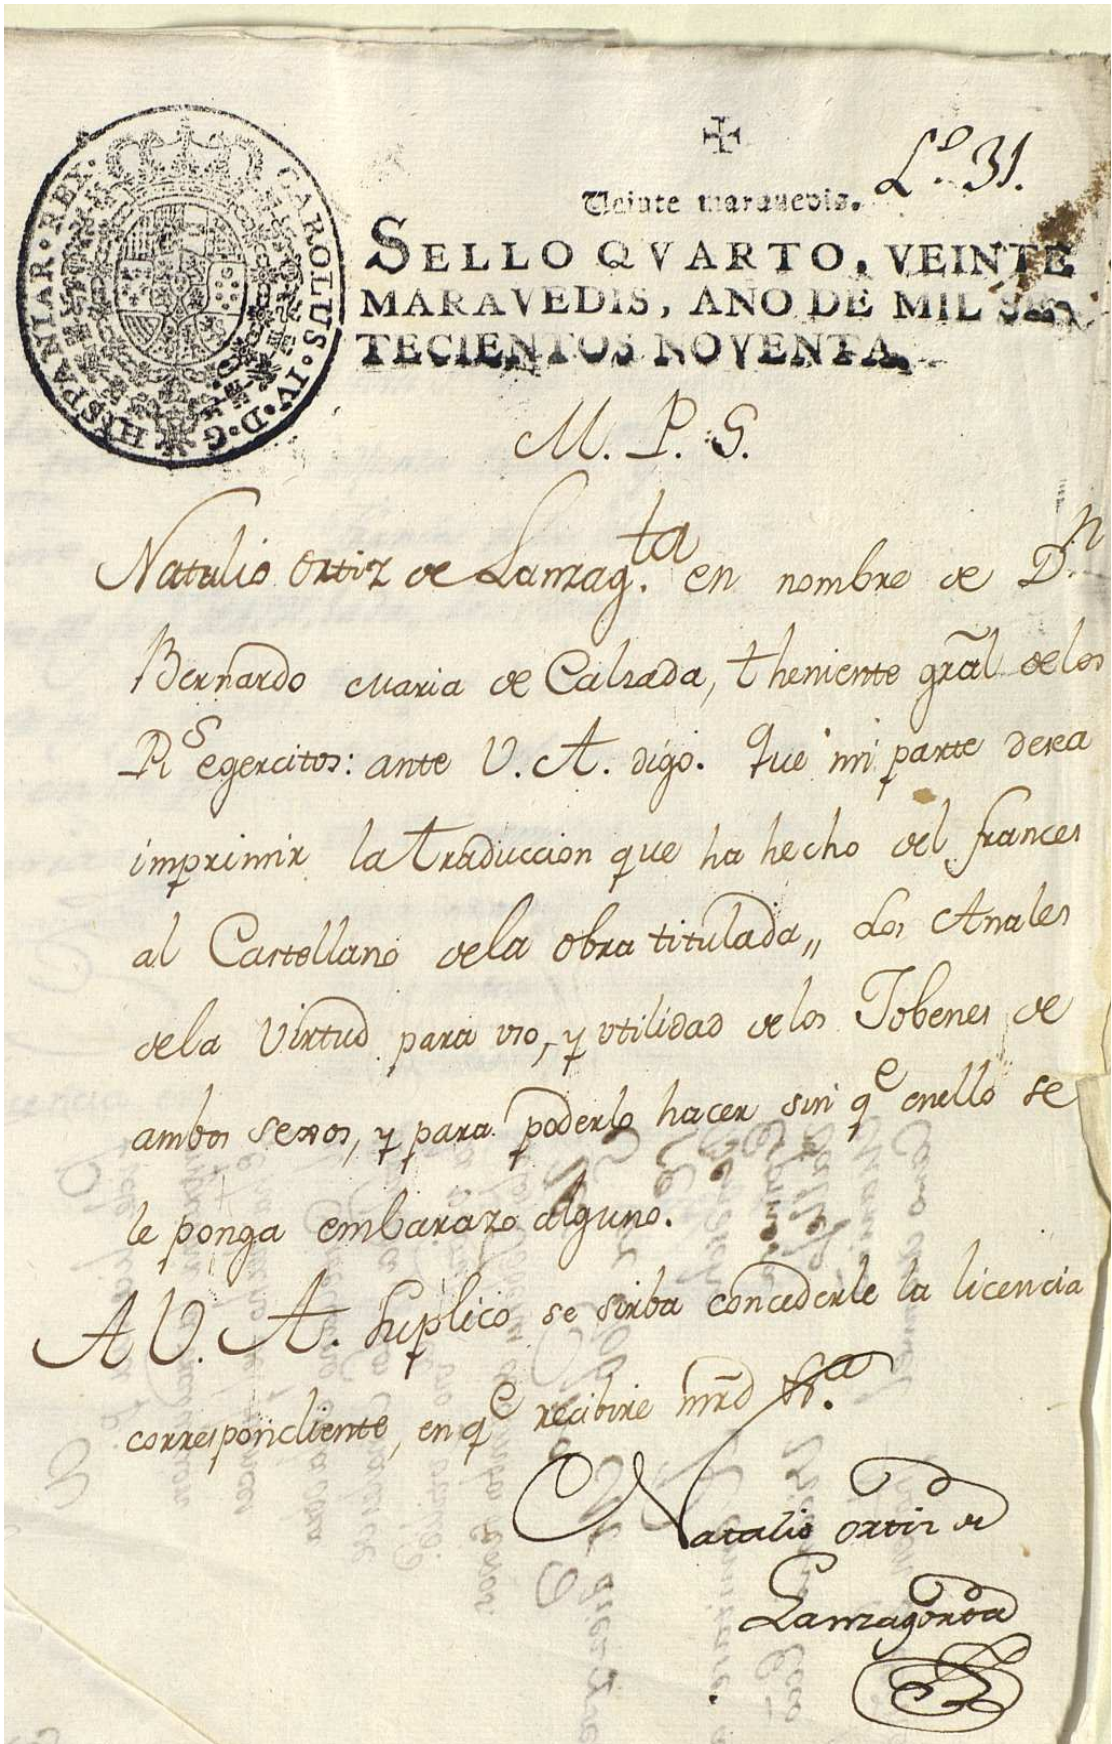 CAROLUS·IV·D·G·HISPANIAR·REX·
L.º 31.
Veinte maravedis.
SELLO QVARTO, VEINTE
MARAVEDIS, AÑO DE MIL SE-
TECIENTOS NOVENTA.
M. P. S.
Natalio Ortiz de Lanzag.ta en nombre de D.n
Bernardo Maria de Calzada, theniente grãl delos
Rs egercitos: ante V. A. digo. Que mi parte desea
imprimir la traduccion que ha hecho del frances
al Castellano dela obra titulada,, Los Anales
dela Virtud para uso, y utilidad delos Jobenes de
ambos sexos, y para poderlo hacer sin qe enello se
le ponga embarazo alguno.
A V. A. suplico se sirba concederle la licencia
correspondiente, en qe recibire mr̃d
Natalio Ortiz de
Lanzagorta